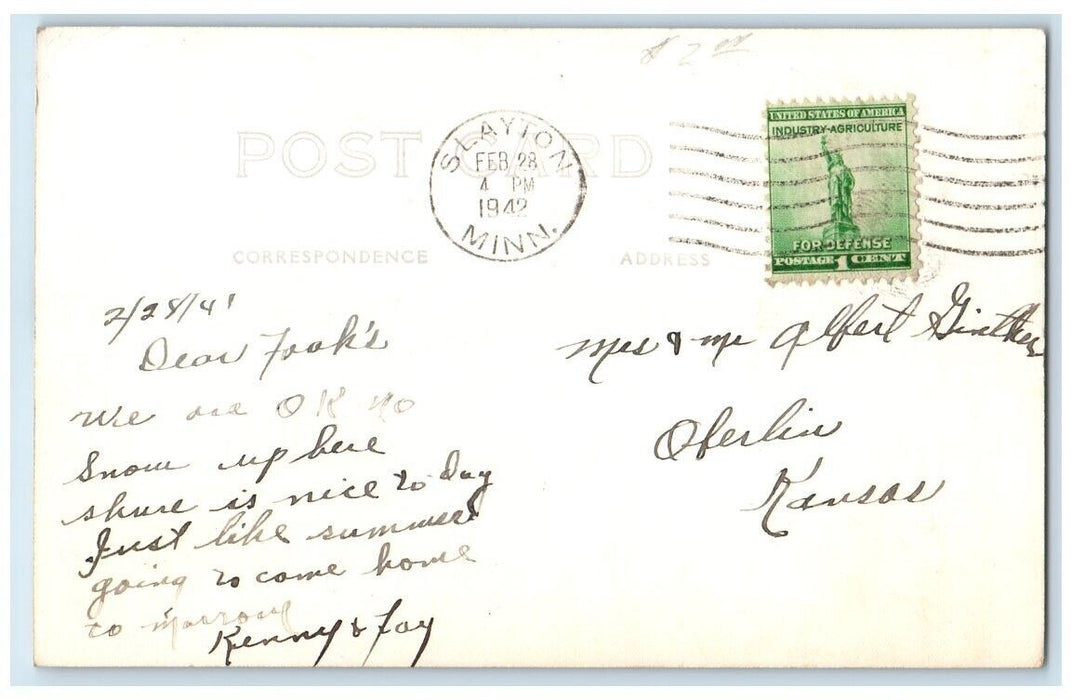 $ 2.00
POST CARD
SLAYTON
FEB 28
4 PM
1942
MINN.
UNITED STATES OF AMERICA
INDUSTRY-AGRICULTURE
FOR DEFENSE
POSTAGE 1 CENT
CORRESPONDENCE
ADDRESS
2/28/41
Dear Fook's
We are OK no
Snow up here
shure is nice to day
Just like summer
going to come home
to morrow
Kenny & Fay
Mrs & Mr Albert Ginther
Oberlin
Kansas